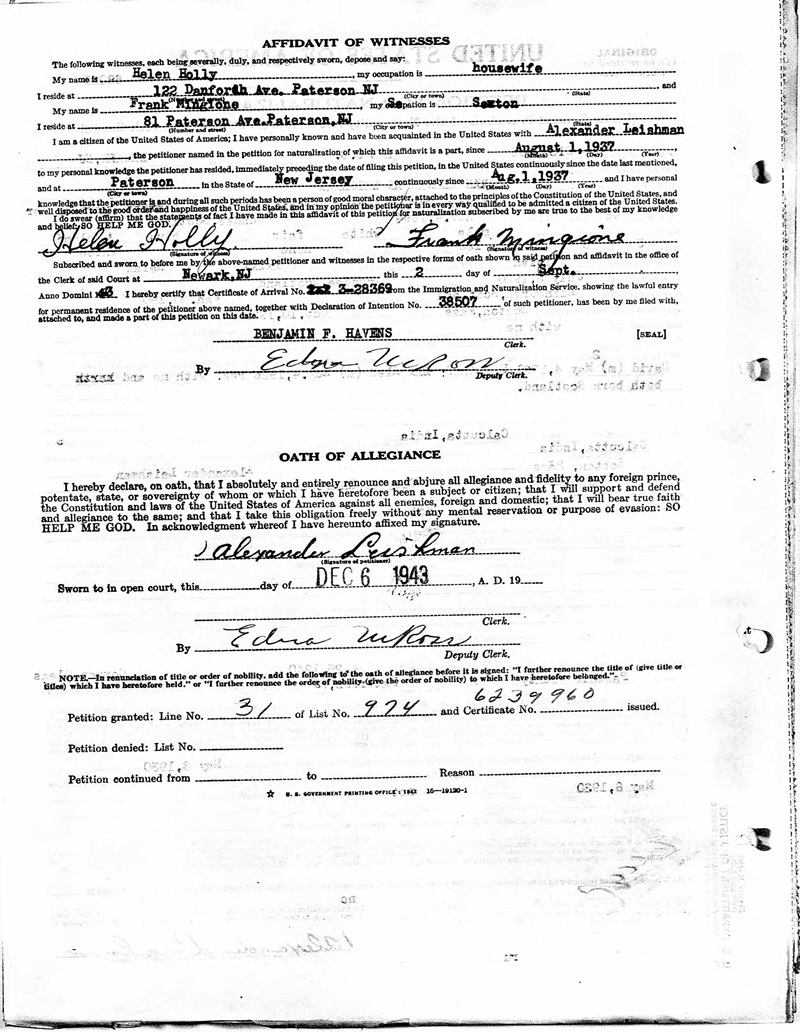 AFFIDAVIT OF WITNESSES
The following witnesses, each being severally, duly, and respectively sworn, depose and say:
My name is Helen Holly, my occupation is housewife
I reside at 122 Danforth Ave. Paterson NJ and
(Number and street) (City or town) (State)
My name is Frank Mingione, my occupation is Sexton
I reside at 81 Paterson Ave.Paterson,NJ
(Number and street) (City or town) (State)
I am a citizen of the United States of America; I have personally known and have been acquainted in the United States with Alexander Leishman
, the petitioner named in the petition for naturalization of which this affidavit is a part, since August 1,1937
(Month) (Day) (Year)
to my personal knowledge the petitioner has resided, immediately preceding the date of filing this petition, in the United States continuously since the date last mentioned,
and at Paterson in the State of New Jersey continuously since Aug,1,1937 and I have personal
(City or town) (Month) (Day) (Year)
knowledge that the petitioner is and during all such periods has been a person of good moral character, attached to the principles of the Constitution of the United States, and
well disposed to the good order and happiness of the United States, and in my opinion the petitioner is in every way qualified to be admitted a citizen of the United States.
I do swear (affirm) that the statements of fact I have made in this affidavit of this petition for naturalization subscribed by me are true to the best of my knowledge
and belief: SO HELP ME GOD.
Helen Holly Frank Mingione
(Signature of witness) (Signature of witness)
Subscribed and sworn to before me by the above-named petitioner and witnesses in the respective forms of oath shown in said petition and affidavit in the office of
the Clerk of said Court at Newark,NJ this 2 day of Sept.
Anno Domini 43 I hereby certify that Certificate of Arrival No. 2x2 3-28369 from the Immigration and Naturalization Service, showing the lawful entry
for permanent residence of the petitioner above named, together with Declaration of Intention No. 38507 of such petitioner, has been by me filed with,
attached to, and made a part of this petition on this date.
BENJAMIN F. HAVENS [SEAL]
Clerk.
By Edna McRoss
Deputy Clerk.
OATH OF ALLEGIANCE
I hereby declare, on oath, that I absolutely and entirely renounce and abjure all allegiance and fidelity to any foreign prince,
potentate, state, or sovereignty of whom or which I have heretofore been a subject or citizen; that I will support and defend
the Constitution and laws of the United States of America against all enemies, foreign and domestic; that I will bear true faith
and allegiance to the same; and that I take this obligation freely without any mental reservation or purpose of evasion: SO
HELP ME GOD. In acknowledgment whereof I have hereunto affixed my signature.
Alexander Leishman
(Signature of petitioner)
Sworn to in open court, this day of DEC 6 1943, A. D. 19
Clerk.
By Edna McRoss
Deputy Clerk.
NOTE.—In renunciation of title or order of nobility, add the following to the oath of allegiance before it is signed: "I further renounce the title of (give title or
titles) which I have heretofore held." or "I further renounce the order of nobility (give the order of nobility) to which I have heretofore belonged."
Petition granted: Line No. 31 of List No. 974 and Certificate No. 6239960 issued.
Petition denied: List No.
Petition continued from to Reason
☆ U. S. GOVERNMENT PRINTING OFFICE : 1942 16—19120-1